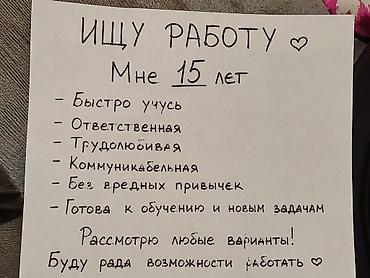 ИЩУ РАБОТУ ♡
Мне 15 лет
- Быстро учусь
- Ответственная
- Трудолюбивая
- Коммуникабельная
- Без вредных привычек
- Готова к обучению и новым задачам
Рассмотрю любые варианты!
Буду рада возможности работать ♡